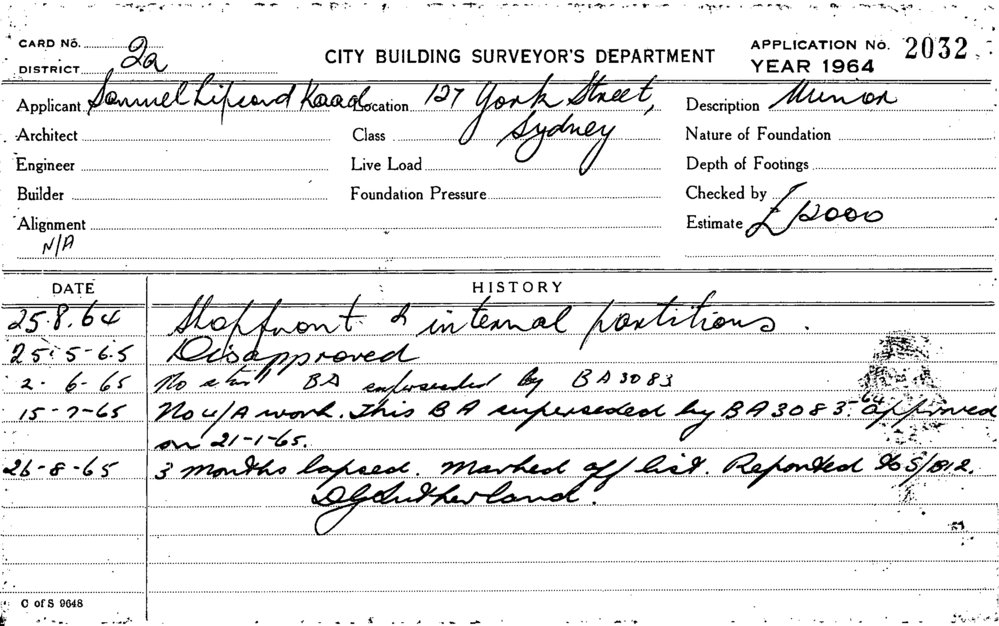 CARD No. 2a
DISTRICT
CITY BUILDING SURVEYOR'S DEPARTMENT
APPLICATION No. 2032
YEAR 1964
Applicant Samuel Lipcord Kaad Location 127 York Street, Sydney Description Minor
Architect Class Nature of Foundation
Engineer Live Load Depth of Footings
Builder Foundation Pressure Checked by
Alignment Estimate £12000
N/A
DATE HISTORY
25.8.64 Shopfront & internal partitions.
25-5-65 Disapproved
2-6-65 No BA superseded by BA3083
15-7-65 No u/A work. This BA superseded by BA3083-64 approved
on 21-1-65.
26-8-65 3 months lapsed. Marked off list. Reported to S/812.
DGSutherland.
C of S 9648